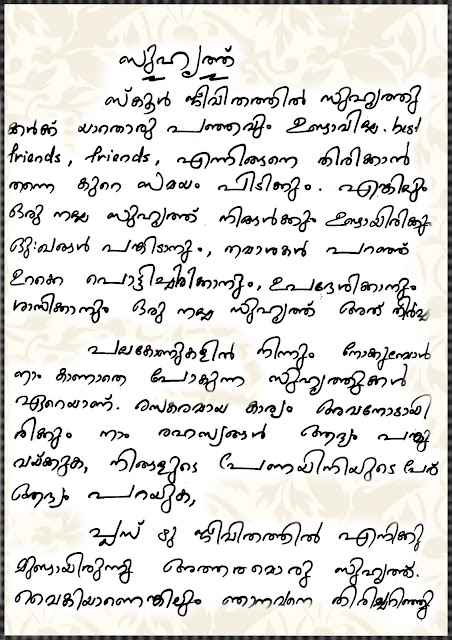 സുഹൃത്ത്
സ്കൂൾ ജീവിതത്തിൽ സുഹൃത്തു
ക്കൾക്ക് യാതൊരു പഞ്ഞവും ഉണ്ടാവില്ല. best
friends, friends, എന്നിങ്ങനെ തിരിക്കാൻ
തന്നെ കുറെ സമയം പിടിക്കും. എങ്കിലും
ഒരു നല്ല സുഹൃത്ത് നിങ്ങൾക്കും ഉണ്ടായിരിക്കും
ദു:ഖങ്ങൾ പങ്കിടാനും, നമാശകൾ പറഞ്ഞ്
ഉറക്കെ പൊട്ടിച്ചിരിക്കാനും, ഉപദ്ദേശിക്കാനും
ശാസിക്കാനും ഒരു നല്ല സുഹൃത്ത് അത് തീർച്ച
പലകോണുകളിൽ നിന്നും നോക്കുമ്പോൾ
നാം കാണാതെ പോകുന്ന സുഹൃത്തുക്കൾ
ഏറെയാണ്. രസകരമായ കാര്യം അവനോടായി
രിക്കും നാം രഹസ്യങ്ങൾ ആദ്യം പങ്കു
വയ്ക്കുക, നിങ്ങളുടെ പ്രണയിനിയുടെ പേര്
ആദ്യം പറയുക,
പ്ലസ് ടു ജീവിതത്തിൽ എനിക്കു
മുണ്ടായിരുന്നു അത്തരമൊരു സുഹൃത്ത്.
വൈകിയാണെങ്കിലും ഞാനവനെ തിരിച്ചറിഞ്ഞു